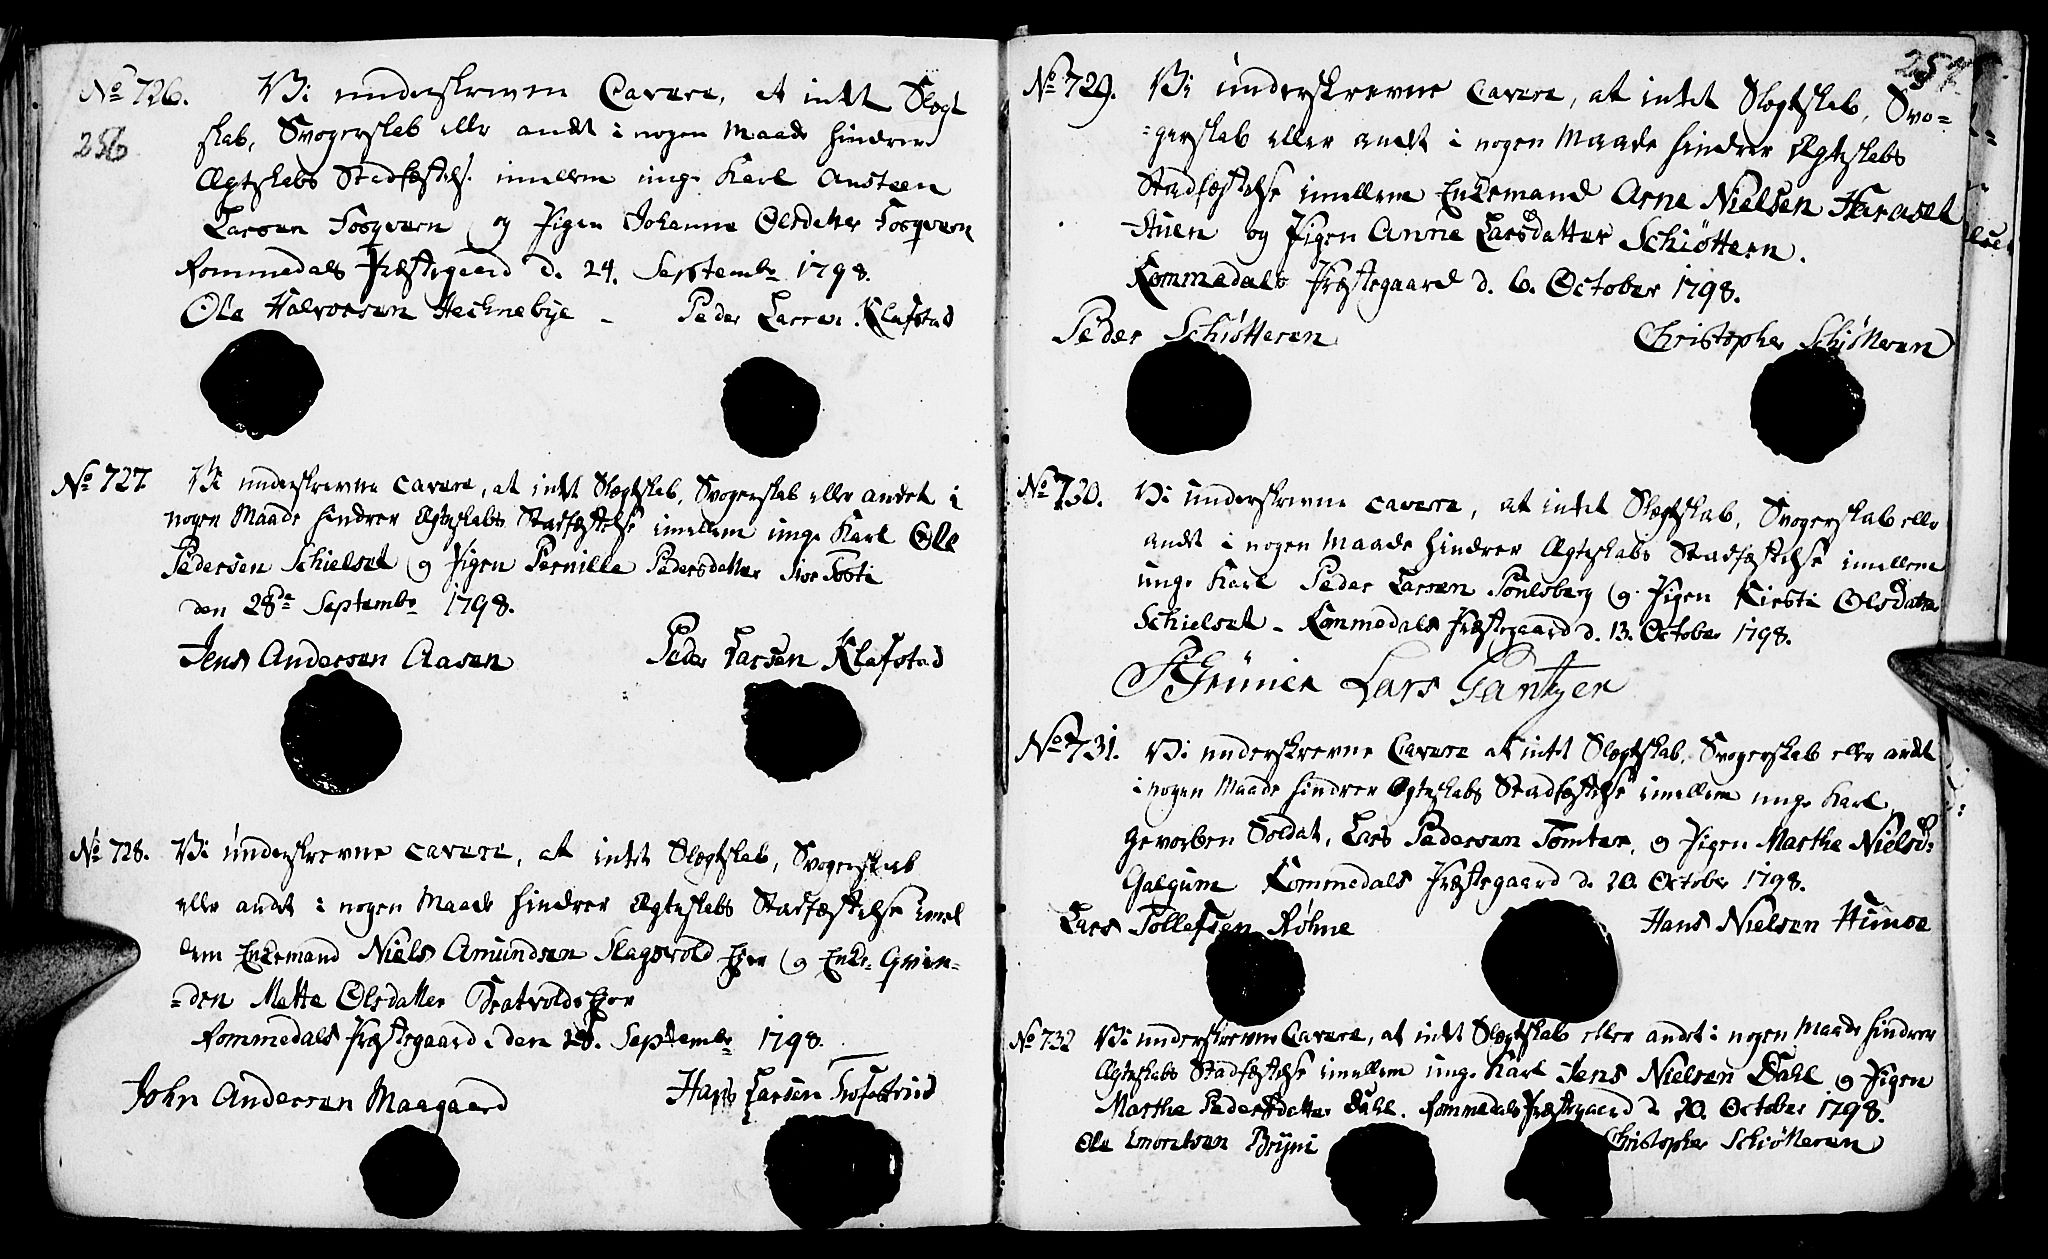 No 726. Vi underskrevne Cavere, at intet Slægt
256
skab, Svogerskab eller andet i nogen Maade hindrer
Ægteskabs Stadfæstelse imellem unge Karl Austeen
Larsen Fosqvern og Pigen Johanne Olsdatter Fosqvern
Rommedals Præstegaard d. 24. Septembr 1798.
Ole Halvorsen Hechnebye - Peder Larsen Klafstad
No 727 Vi underskrevne Cavere, at intet Slægtskab, Svogerskab eller andet i
nogen Maade hindrer Ægteskabs Stadfæstelse imellem unge Karl Ole
Pedersen Schielset og Pigen Pernille Pedersdatter
den 28de Septembr 1798.
Jens Andersen Aasen Peder Larsen Klafstad
No 728. Vi underskrevne cavere, at intet Slægtskab, Svogerskab
eller andet i nogen Maade hindrer Ægteskabs Stadfæstelse imel
lem Enkemand Niels Amundsen Slagsvold Eyer og Enke-Qvin-
-den Mette Olsdatter
Rommedals Præstegaard den 28. Septembr 1798.
John Andersen Maagaard Hans Larsen Trofastrud
257.
No 729. Vi underskrevne Cavere, at intet Slægtskab, Svo-
-gerskab eller andet i nogen Maade hindrer Ægteskabs
Stadfæstelse imellem Enkemand Arne Nielsen Haraset
Stuen og Pigen Anne Larsdatter Schiøtteren.
Rommedals Præstegaard d. 6. October 1798.
Peder Schiøtteren Christopher Schiøtteren
No 730. Vi underskrevne cavere, at intet Slægtskab, Svogerskab eller
andet i nogen Maade hindrer Ægteskabs Stadfæstelse imellem
unge Karl Peder Larsen Poulsberg og Pigen Kirsti Olsdatter
Schielset - Rommedals Præstegaard d. 13. October 1798.
Lars Gantzer
No 731. Vi underskrevne Cavere at intet Slægtskab, Svogerskab eller andet
i nogen Maade hindrer Ægteskabs Stadfæstelse imellem unge Karl,
gevorben Soldat, Lars Pedersen Tomter, og Pigen Marthe Nielsd:
Galgum Rommedals Præstegaard d. 20. October 1798.
Lars Tollefsen Røhne Hans Nielsen Hunoe
No 732 Vi underskrevne Cavere, at intet Slægtskab eller andet i nogen Maade hindrer
Ægteskabs Stadfæstelse imellem unge Karl Jens Nielsen Dahl og Pigen
Marthe Pedersdatter Dahl. Rommedals Præstegaard d. 20. October 1798.
Ole Bryni Christopher Schiøtteren